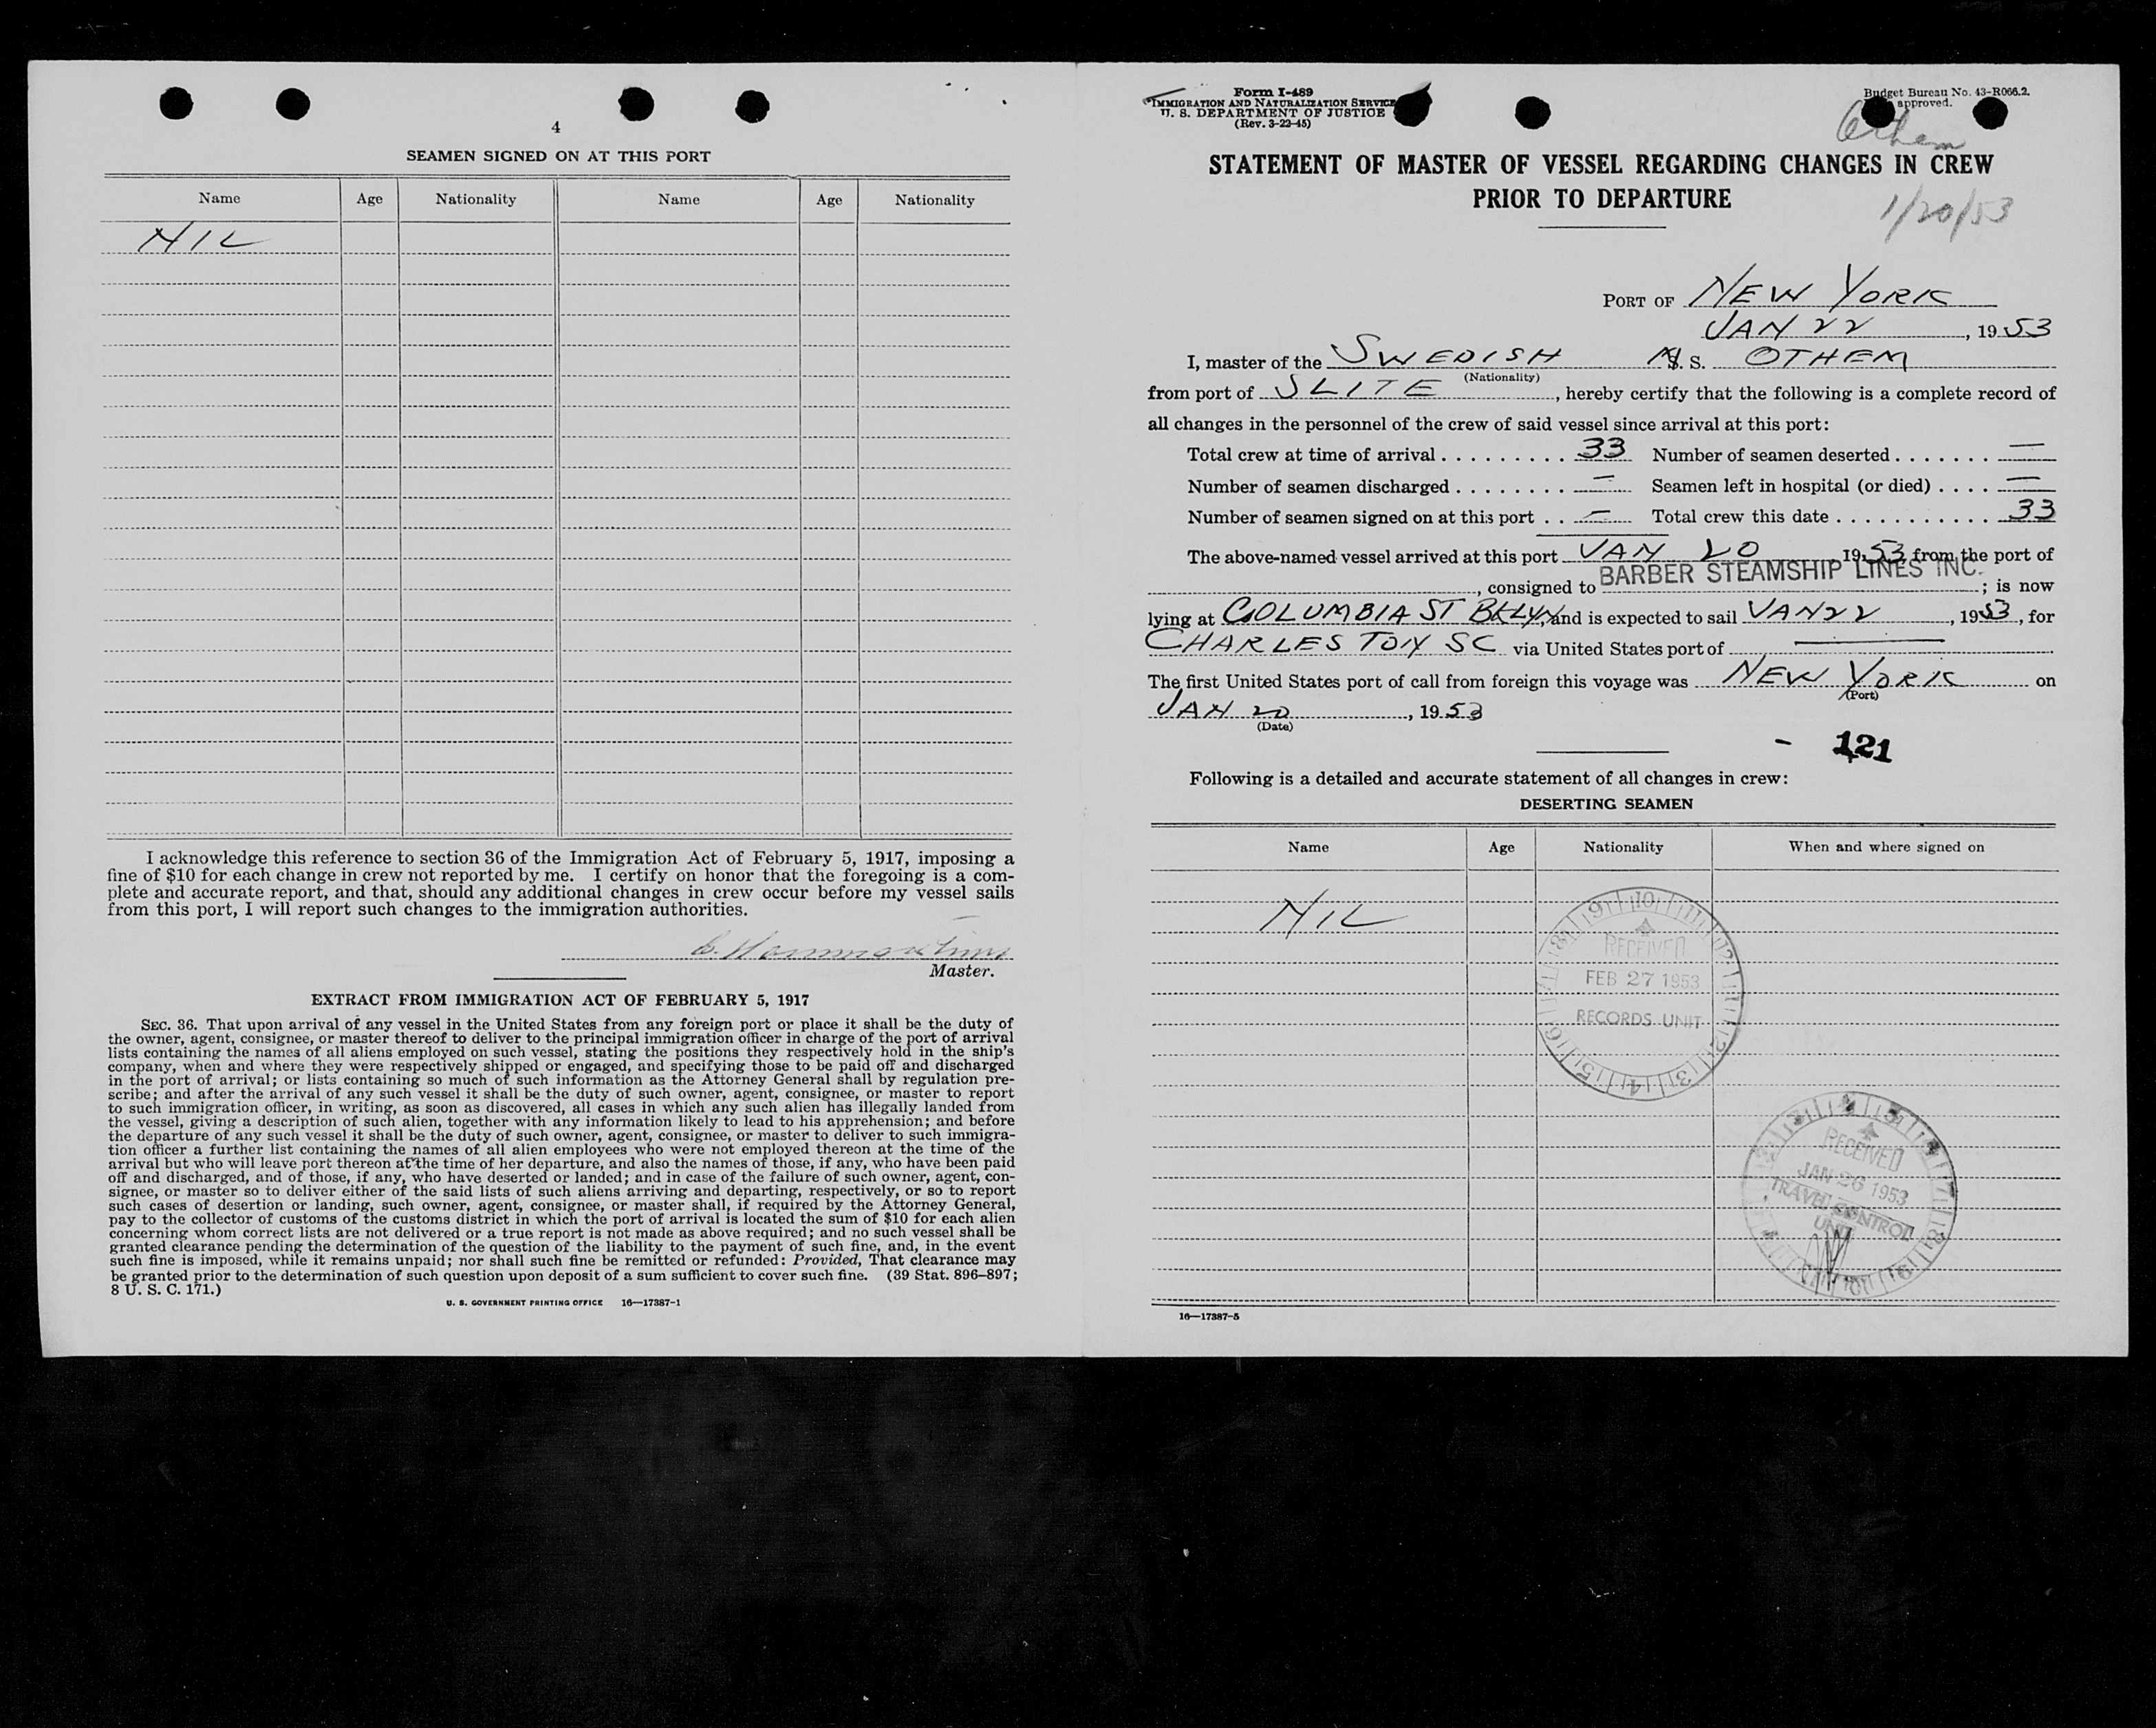 4
SEAMEN SIGNED ON AT THIS PORT
Name Age Nationality Name Age Nationality
NIL
I acknowledge this reference to section 36 of the Immigration Act of February 5, 1917, imposing a
fine of $10 for each change in crew not reported by me. I certify on honor that the foregoing is a com-
plete and accurate report, and that, should any additional changes in crew occur before my vessel sails
from this port, I will report such changes to the immigration authorities.
Master.
EXTRACT FROM IMMIGRATION ACT OF FEBRUARY 5, 1917
SEC. 36. That upon arrival of any vessel in the United States from any foreign port or place it shall be the duty of
the owner, agent, consignee, or master thereof to deliver to the principal immigration officer in charge of the port of arrival
lists containing the names of all aliens employed on such vessel, stating the positions they respectively hold in the ship's
company, when and where they were respectively shipped or engaged, and specifying those to be paid off and discharged
in the port of arrival; or lists containing so much of such information as the Attorney General shall by regulation pre-
scribe; and after the arrival of any such vessel it shall be the duty of such owner, agent, consignee, or master to report
to such immigration officer, in writing, as soon as discovered, all cases in which any such alien has illegally landed from
the vessel, giving a description of such alien, together with any information likely to lead to his apprehension; and before
the departure of any such vessel it shall be the duty of such owner, agent, consignee, or master to deliver to such immigra-
tion officer a further list containing the names of all alien employees who were not employed thereon at the time of the
arrival but who will leave port thereon at the time of her departure, and also the names of those, if any, who have been paid
off and discharged, and of those, if any, who have deserted or landed; and in case of the failure of such owner, agent, con-
signee, or master so to deliver either of the said lists of such aliens arriving and departing, respectively, or so to report
such cases of desertion or landing, such owner, agent, consignee, or master shall, if required by the Attorney General,
pay to the collector of customs of the customs district in which the port of arrival is located the sum of $10 for each alien
concerning whom correct lists are not delivered or a true report is not made as above required; and no such vessel shall be
granted clearance pending the determination of the question of the liability to the payment of such fine, and, in the event
such fine is imposed, while it remains unpaid; nor shall such fine be remitted or refunded: Provided, That clearance may
be granted prior to the determination of such question upon deposit of a sum sufficient to cover such fine. (39 Stat. 896–897;
8 U. S. C. 171.)
U. S. GOVERNMENT PRINTING OFFICE 16—17387-1
Form I-489
IMMIGRATION AND NATURALIZATION SERVICE
U. S. DEPARTMENT OF JUSTICE
(Rev. 3-22-45)
Budget Bureau No. 43-R066.2.
approved.
Othem
STATEMENT OF MASTER OF VESSEL REGARDING CHANGES IN CREW
PRIOR TO DEPARTURE
1/20/53
PORT OF NEW YORK
JAN 22, 1953
I, master of the SWEDISH M. S. OTHEM
(Nationality)
from port of SLITE, hereby certify that the following is a complete record of
all changes in the personnel of the crew of said vessel since arrival at this port:
Total crew at time of arrival . . . . . . . . . 33 Number of seamen deserted . . . . . . . —
Number of seamen discharged . . . . . . . . — Seamen left in hospital (or died) . . . . —
Number of seamen signed on at this port . . — Total crew this date . . . . . . . . . . . . 33
The above-named vessel arrived at this port JAN 20, 1953 from the port of
, consigned to BARBER STEAMSHIP LINES INC.; is now
lying at COLUMBIA ST BKLYN, and is expected to sail JAN 22, 1953, for
CHARLESTON SC via United States port of —
The first United States port of call from foreign this voyage was NEW YORK on
(Port)
JAN 20, 1953
(Date)
- 121
Following is a detailed and accurate statement of all changes in crew:
DESERTING SEAMEN
Name Age Nationality When and where signed on
NIL
RECEIVED
FEB 27 1953
RECORDS UNIT
RECEIVED
JAN 26 1953
TRAVEL CONTROL
UNIT
16—17387-5